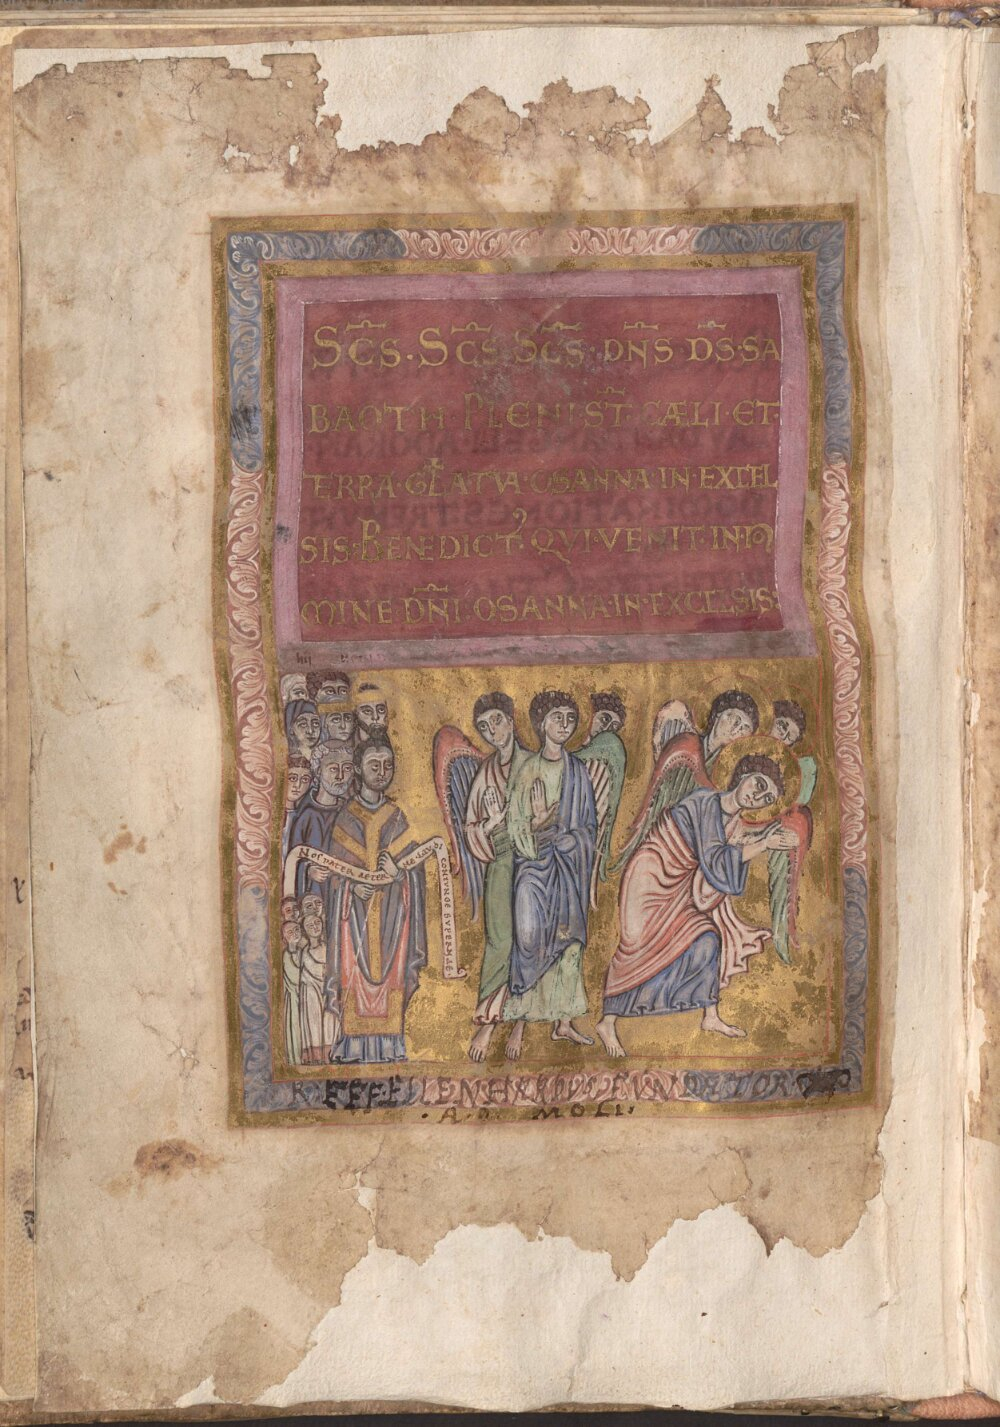 SC̄S·SC̄S SC̄S·DN̄S·DS̄·SA
BAOTH·PLENI·ST̄·CÆLI·ET·
TERRA·GL̄A TVA·OSANNA·IN·EXCEL
SIS·BENEDICT᾿·QVI·VENIT·IN
MINE·DN̄I·OSANNA·IN·EXCELSIS:
NOS PATER AETER NE LAVDI
CONIVNGE SVPERNAE
FVNDATOR
A.D. MOLI.